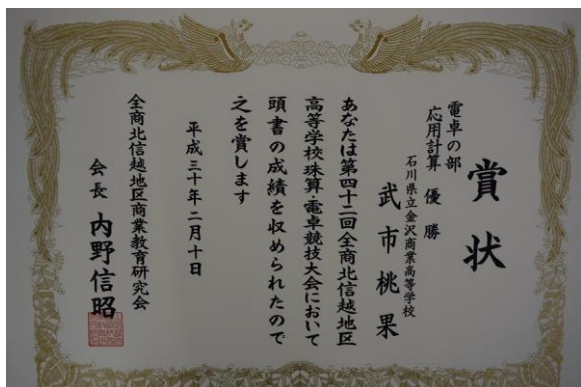 賞状
電卓の部
応用計算 優勝
石川県立金沢商業高等学校
武市桃果
あなたは第四十二回全商北信越地区
高等学校珠算・電卓競技大会において
頭書の成績を収められたので
之を賞します
平成三十年二月十日
全商北信越地区商業教育研究会
会長 内野信昭